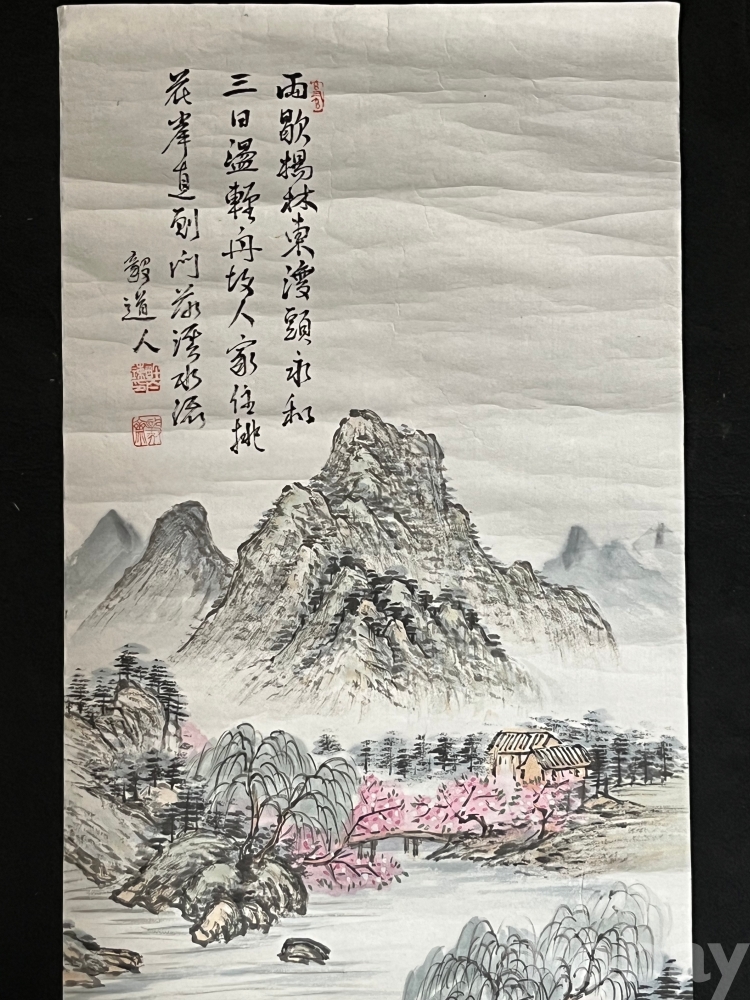 雨歇楊林東渡頭永和
三日盪輕舟故人家住桃
花岸直到门前溪水流
毅道人